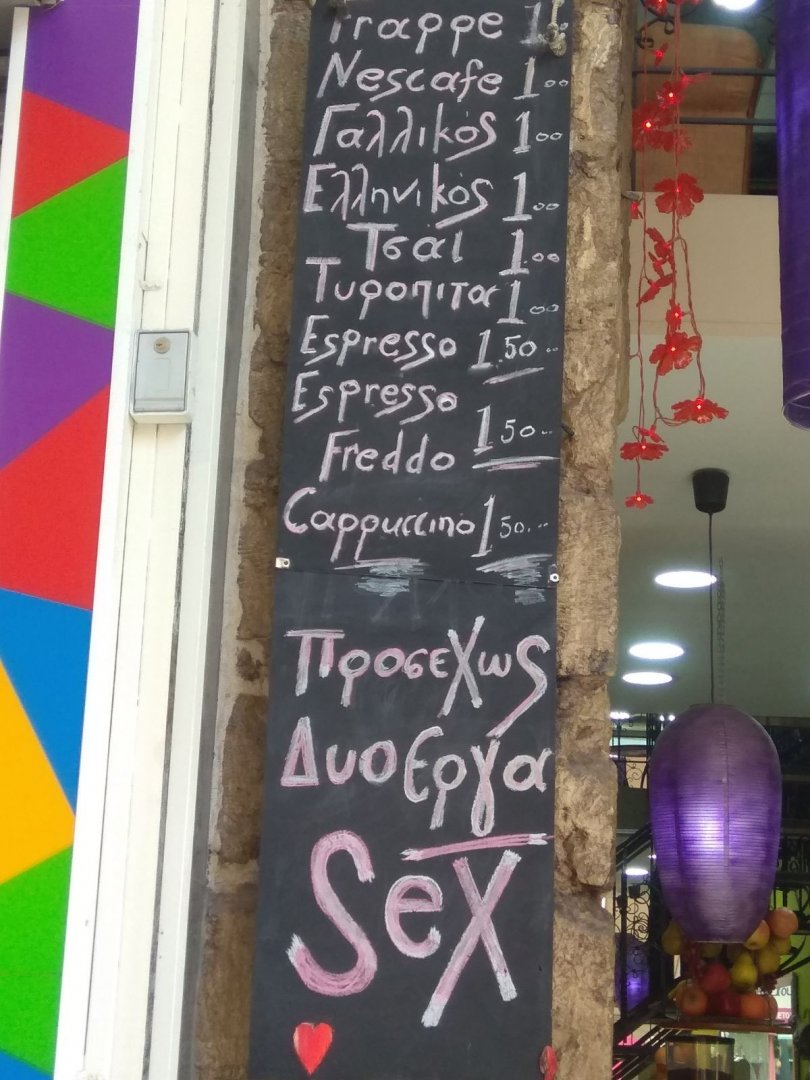 Frappe 1.00
Nescafe 1.00
Γαλλικός 1.00
Ελληνικός 1.00
Τσάι 1.00
Τυροπιτα 1.00
Espresso 1.50
Espresso
Freddo 1.50
Cappuccino 1.50
Προσεχως
Δυο Εργα
Sex